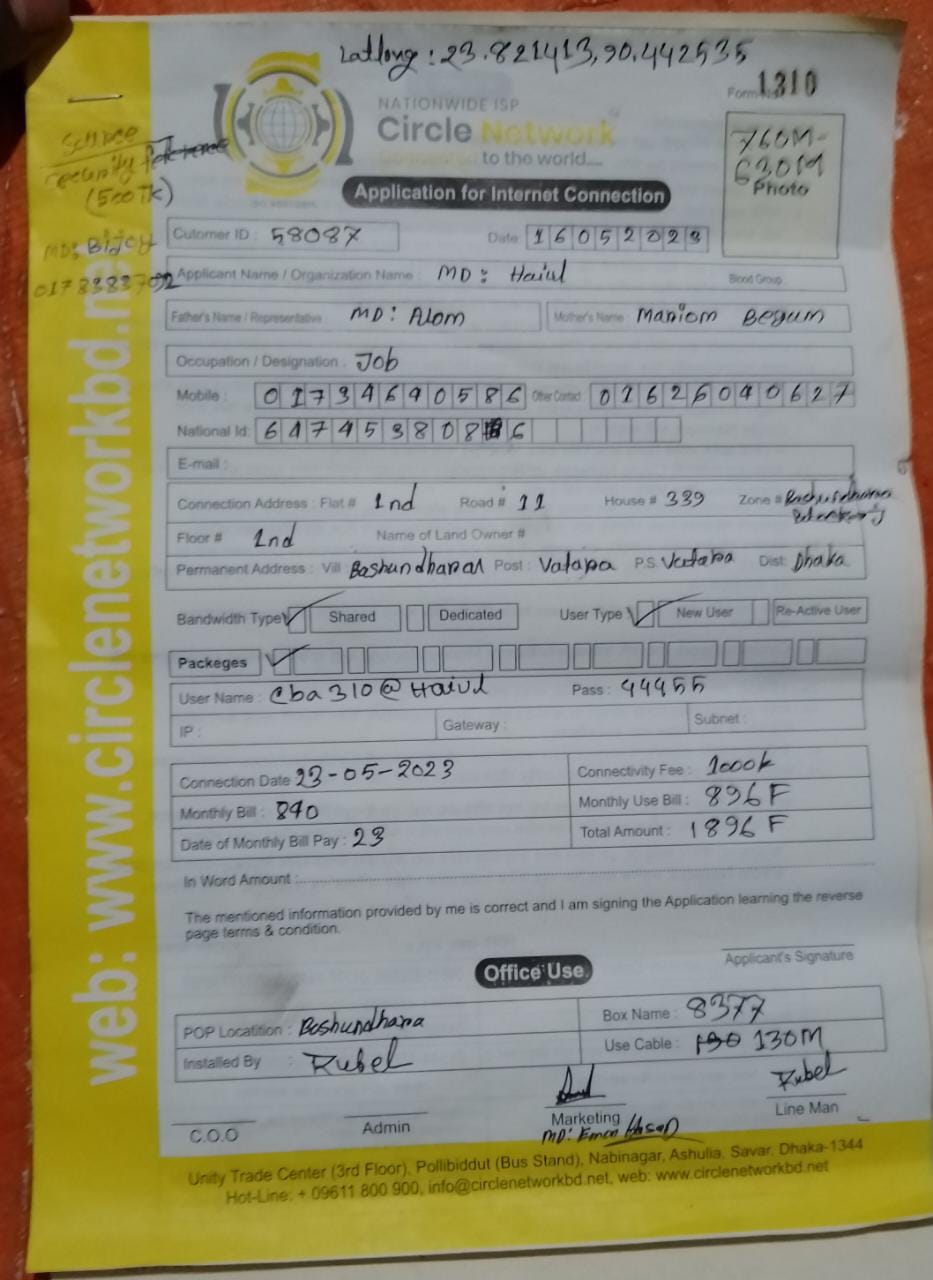 Latlong : 23.821413, 90.442535
Form No 1310
NATIONWIDE ISP
Circle Network
Connected to the world....
760M-
630M
Photo
Application for Internet Connection
security
(500 TK)
MD: Bijoy
Cutomer ID : 58087 Date 16052023
Applicant Name / Organization Name : MD: Haiul Blood Group
Father's Name / Representative MD: Alom Mother's Name Maniom Begum
Occupation / Designation : Job
Mobile : 01734690586 Other Contact 01626040627
National Id: 647453808 6
E-mail :
Connection Address : Flat # 1nd Road # 11 House # 339 Zone #
Floor # 1nd Name of Land Owner #
Permanent Address : Vill Bashundharar Post : Vatara P.S Vatara Dist: Dhaka
Bandwidth Type Shared Dedicated User Type New User Re-Active User
Packeges
User Name : Cba310@Haiul Pass : 44455
IP : Gateway : Subnet :
Connection Date 23-05-2023 Connectivity Fee : 1000k
Monthly Bill : 840 Monthly Use Bill : 896 F
Date of Monthly Bill Pay : 23 Total Amount : 1896 F
In Word Amount :
The mentioned information provided by me is correct and I am signing the Application learning the reverse
page terms & condition.
Applicant's Signature
Office Use.
POP Locatition : Boshundhara Box Name : 8377
Installed By : Rubel Use Cable : 130M
Rubel
C.O.O Admin Marketing Line Man
MD: Emon Hasan
Unity Trade Center (3rd Floor), Pollibiddut (Bus Stand), Nabinagar, Ashulia, Savar, Dhaka-1344
Hot-Line: + 09611 800 900, info@circlenetworkbd.net, web: www.circlenetworkbd.net
web: www.circlenetworkbd.net